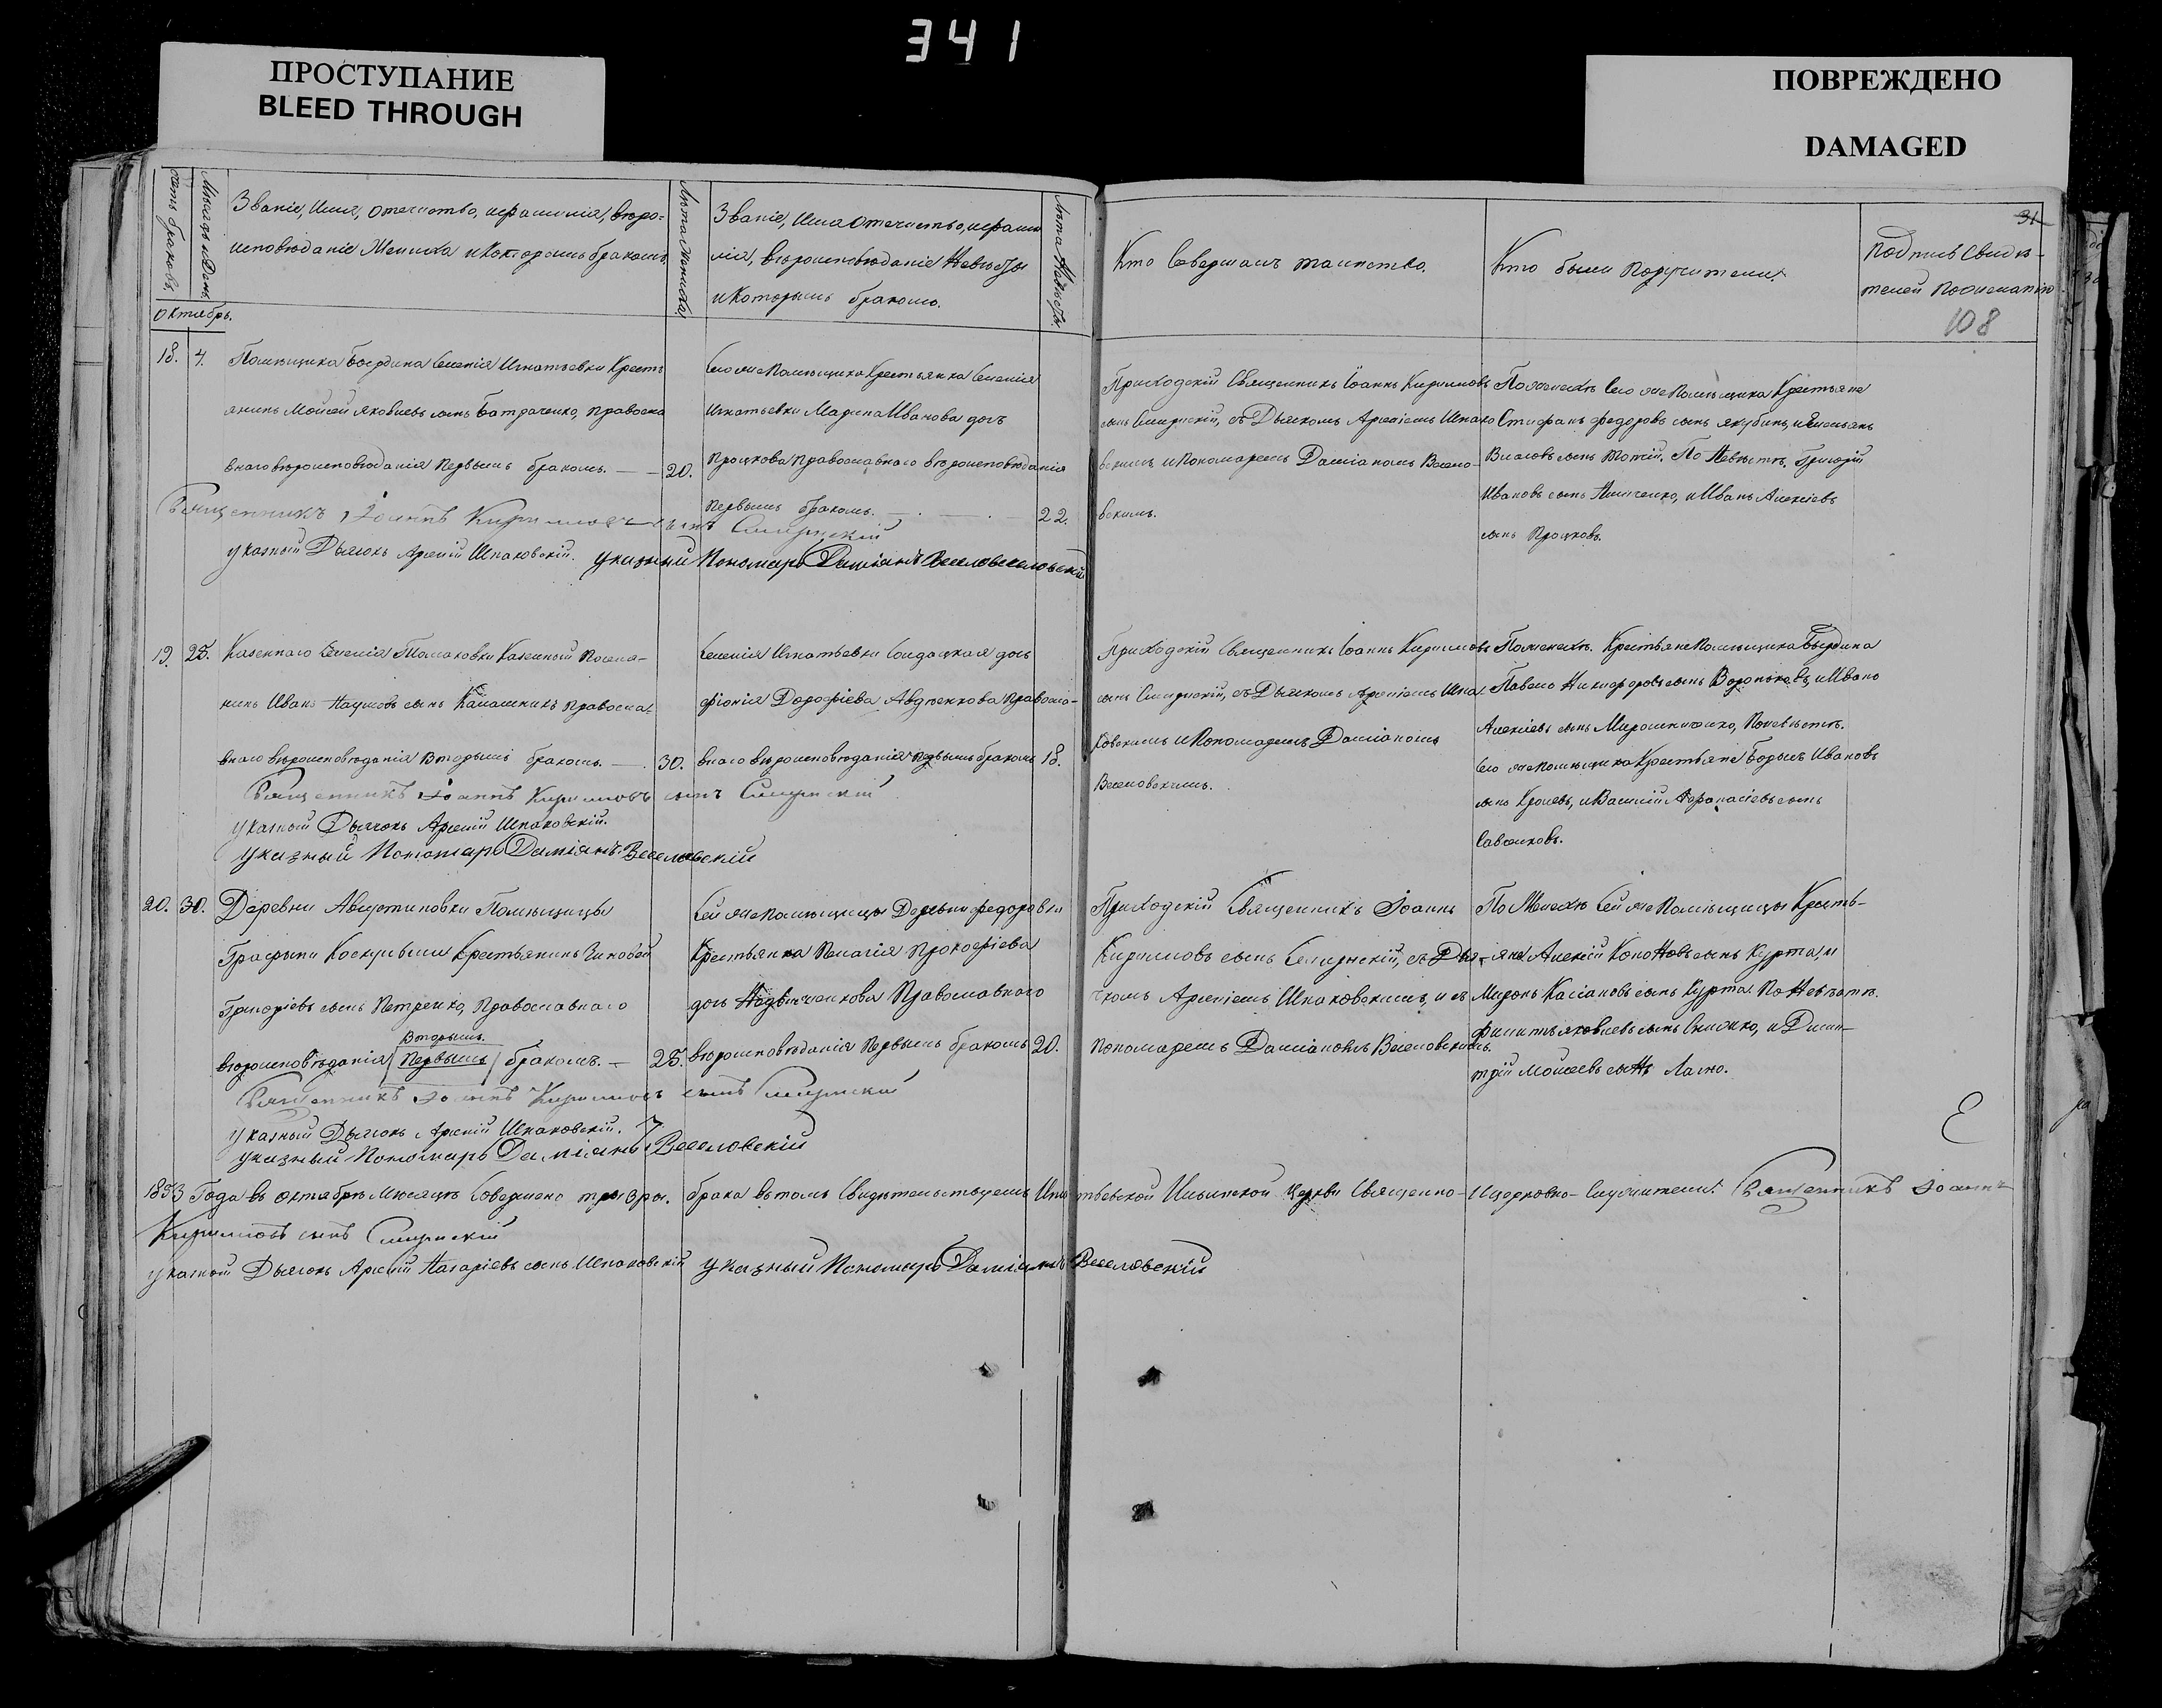 341
ПРОСТУПАНИЕ
BLEED THROUGH
ПОВРЕЖДЕНО
DAMAGED
31
108
Счетъ браковъ
Мѣсяцъ и День
Званіе, Имя, отечество, и фамилія, вѣро-
исповѣданіе Жениха и которымъ бракомъ.
Лѣта Жениха
Званіе, Имя отечество, и фами
лія, вѣроисповѣданіе Невѣсты
и которымъ бракомъ.
Лѣта Невѣсты
Кто Совершалъ таинство.
Кто были Поручители.
Подпись Свидѣ-
телей по желанію
октябрь.
18. 4. Помѣщика Бердина Селенія Игнатьевки Кресть
янинъ Мойсей Яковлевъ сынъ Батраченко, Правосла
внаго вѣроисповѣданія Первымъ бракомъ. — 20.
Его же Помѣщика Крестьянка Селенія
Игнатьевки Марина Иванова дочь
Процкова Православнаго вѣроисповѣданія
Первымъ бракомъ. 22.
Приходскій Священникъ Іоаннъ Кириловъ
сынъ, съ Дьячкомъ Арсеніемъ Шпако
вскимъ и Пономаремъ Даміаномъ Весело-
вскимъ.
По женихѣ Его же Помѣщика Крестьяне
Стефанъ Федоровъ сынъ Якубинъ, и Емельянъ
Власовъ сынъ. По Невѣстѣ. Григорій
Ивановъ сынъ, и Иванъ Алексіевъ
сынъ Процковъ.
Священникъ Іоаннъ Кириловъ сынъ
указный Дьячокъ Арсеній Шпаковскій. указный Пономарь Даміанъ
19. 25. Казеннаго Селенія Томаковки Казенный Поселя-
нинъ Иванъ Наумовъ сынъ Калашникъ Правосла-
внаго вѣроисповѣданія Вторымъ бракомъ. — 30.
Селенія Игнатьевки Солдацкая дочь
Дорофіева Авдѣенкова Правосла-
внаго вѣроисповѣданія Первымъ бракомъ 18.
Приходскій Священникъ Іоаннъ Кириловъ
сынъ, съ Дьячкомъ Арсеніемъ Шпа
ковскимъ и Пономаремъ Даміаномъ
Веселовскимъ.
По женихѣ. Крестьяне Помѣщика Бердина
Павелъ Никифоровъ сынъ, и Иванъ
Алексіевъ сынъ Мирошниченко, По невѣстѣ.
Его же помѣщика Крестьяне Ивановъ
сынъ, и Василій Афанасіевъ сынъ
Священникъ Іоаннъ Кириловъ сынъ
указный Дьячокъ Арсеній Шпаковскій.
указный Пономарь Даміанъ Веселовскій
20. 30. Деревни Августиновки Помѣщицы
Графини Крестьянинъ
Григоріевъ сынъ Петренко, Православнаго
Вторымъ.
вѣроисповѣданія Первымъ бракомъ. — 25.
Сей же Помѣщицы Деревни Федоровки
Крестьянка Пелагія Прокофіева
дочь Православнаго
вѣроисповѣданія Первымъ бракомъ 20.
Приходскій Священникъ Іоаннъ
Кириловъ сынъ, съ Дья-
чкомъ Арсеніемъ Шпаковскимъ, и съ
Пономаремъ Даміаномъ Веселовскимъ.
По Женихѣ Сей же Помѣщицы Кресть-
яне Алексій Кононовъ сынъ Курта, и
Миронъ Касіановъ сынъ Курта По Невѣстѣ.
Филипъ Яковлевъ сынъ, и Дими-
трій Моисеевъ сынъ
Священникъ Іоаннъ Кириловъ сынъ
указный Дьячокъ Арсеній Шпаковскій.
указный Пономарь Даміанъ Веселовскій
1853 Года въ октябрѣ Мѣсяцѣ Совершено три брака въ томъ Свидѣтельствуемъ Игнатьевской Ильинской Церкви Священно- и Церковно-Служители: Священникъ Іоаннъ
Кириловъ сынъ
указный Дьячокъ Арсеній Назаріевъ сынъ Шпаковскій указный Пономарь Даміанъ Веселовскій